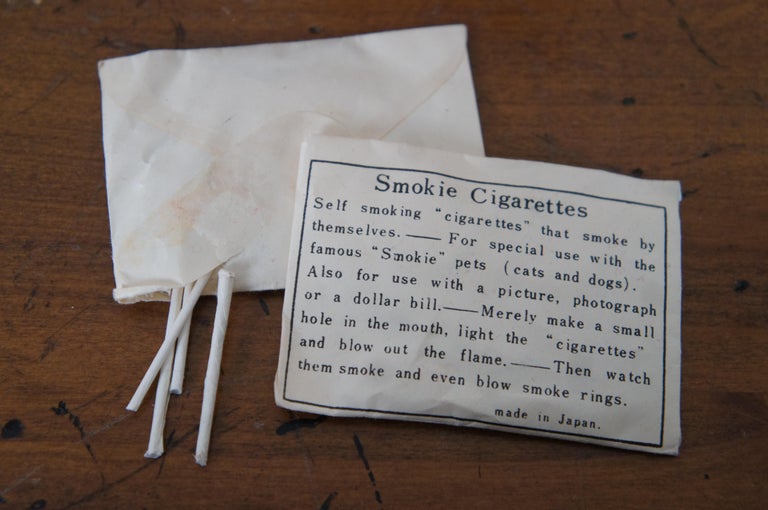 Smokie Cigarettes
Self smoking "cigarettes" that smoke by
themselves.—— For special use with the
famous "Smokie" pets (cats and dogs).
Also for use with a picture, photograph
or a dollar bill.——Merely make a small
hole in the mouth, light the "cigarettes"
and blow out the flame.——Then watch
them smoke and even blow smoke rings.
made in Japan.